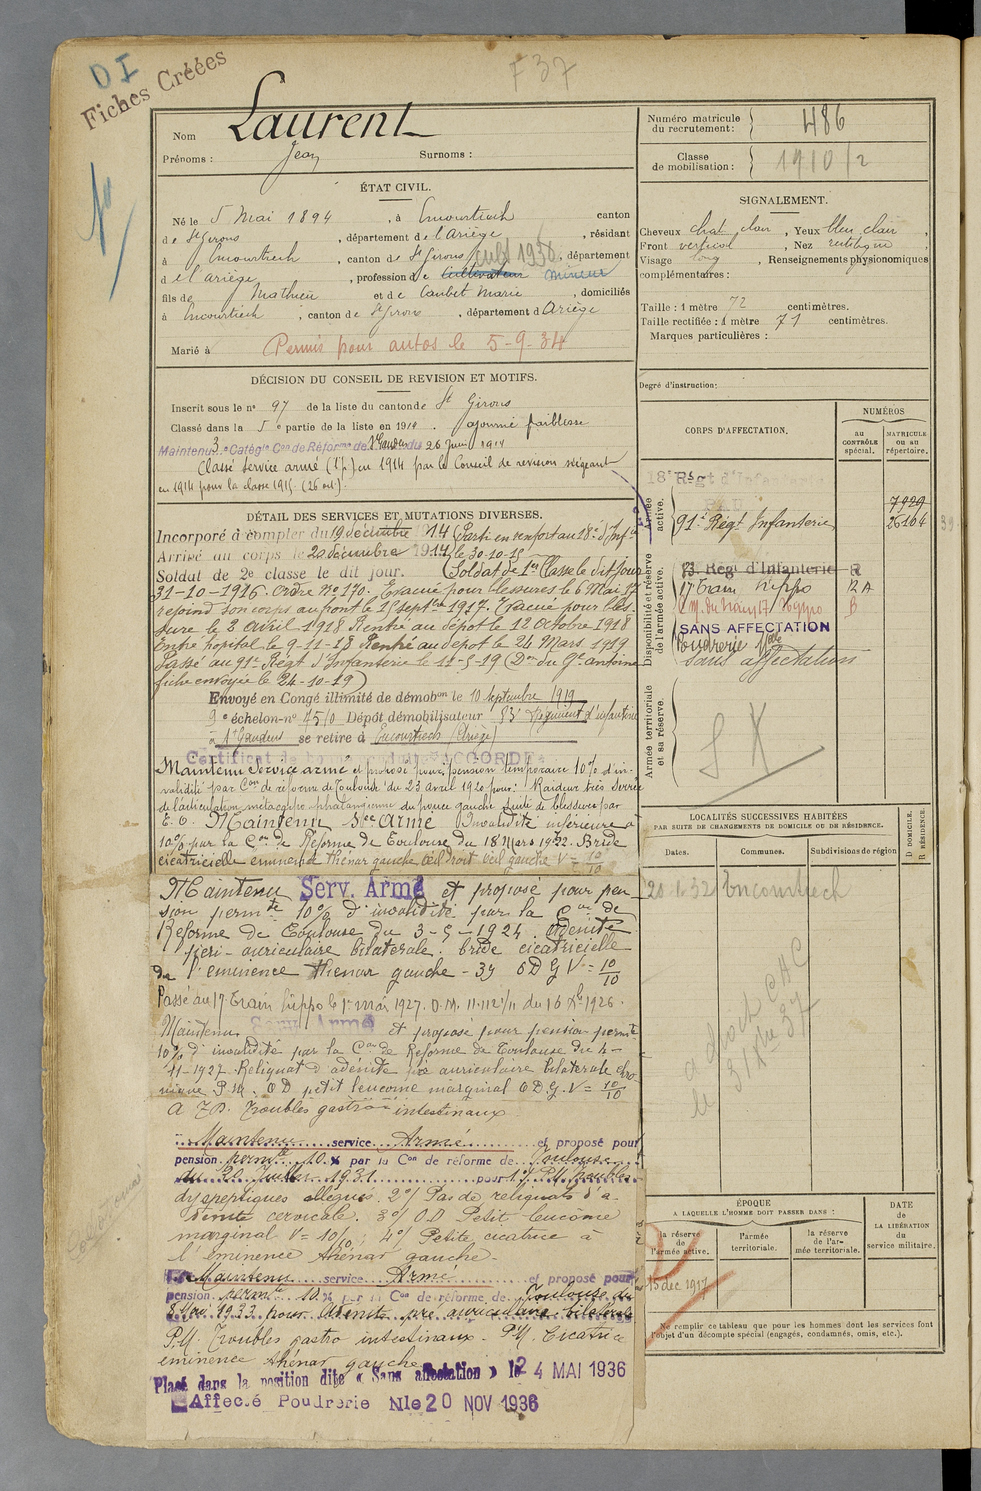 D I
Fiches Créées
F 37
Nom Laurent
Prénoms : Jean Surnoms :
ÉTAT CIVIL.
Né le 5 Mai 1894 , à Encourtiech canton
de St Girons , département de l'Ariège , résidant
à Encourtiech , canton de St Girons , département
cult 1936
de l'ariège , profession de cultivateur mineur
fils de Mathieu et de Caubet Marie , domiciliés
à Encourtiech , canton de St Girons , département d Ariège
Marié à Permis pour autos le 5-9-34
DÉCISION DU CONSEIL DE REVISION ET MOTIFS.
Inscrit sous le no 97 de la liste du canton de St Girons
Classé dans la 5e partie de la liste en 1914 . ajourné faiblesse
Maintenu 3e Catégie Con de Réforme de St Gaudens du 26 Juin 1914
Classé service armé (1re p.) en 1914 par le Conseil de revision siégeant
en 1914 pour la classe 1915. (26 oct.)
DÉTAIL DES SERVICES ET MUTATIONS DIVERSES.
Incorporé à compter du 19 décembre 1914 (Parti en renfort au 18e d'Infie
Arrivé au corps le 20 décembre 1914 le 30-10-15
Soldat de 2e classe le dit jour. (Soldat de 1ere Classe le dit jour
31-10-1916. Ordre No 170. Evacué pour blessures le 6 Mai 17
rejoind son corps au front le 1er Septbre 1917. Evacué pour bles-
sure le 3 avril 1918 Rentré au dépôt le 12 Octobre 1918
Entré hôpital le 9-11-18 Rentré au dépôt le 24 Mars 1919
Passé au 91e Régt d'Infanterie le 11-5-19 (Don du Gal antoine
fiche envoyée le 24-10-19)
Envoyé en Congé illimité de démobon le 10 septembre 1919
9e échelon-no 4510 Dépôt démobilisateur 83e Régiment d'infanterie
à St Gaudens se retire à Encourtiech (Ariège)
Certificat de bonne conduite ACCORDÉ
Maintenu Service armé et proposé pour pension temporaire 10% d'in-
validité par Con de réforme de Toulouse du 23 avril 1920 pour : Raideur très serrée
de l'articulation métacarpo phalangienne du pouce gauche suite de blessure par
E. O. Maintenu Sce armé Invalidité inférieure à
10% par la Con de Réforme de Toulouse du 18 Mars 1922. Bride
cicatricielle eminence thénar gauche œil droit œil gauche V = 10/10
Maintenu Serv. Armé et proposé pour pen
sion permte 10% d'invalidité par la Con de
Réforme de Toulouse du 3-5-1924. Adénite
péri-auriculaire bilatérale, bride cicatricielle
de l'eminence thénar gauche - 3% ODG V = 10/10
Passé au 17e Train hippo le 1er mai 1927. D.M. 11.112 1/11 du 16 Xbre 1926.
Maintenu Serv. Armé et proposé pour pension permte
10% d'invalidité par la Con de Réforme de Toulouse du 4-
11-1927. Reliquat d'adénite pré auriculaire bilatérale chro-
nique P.M. OD petit leucome marginal O.D.G. V = 10/10
Troubles gastro intestinaux
Maintenu service Armé et proposé pour
pension permte 10 % par la Con de réforme de Toulouse
du 20 Juillet 1931 pour 1°/ P.M. troubles
dyspeptiques allégués. 2°/ Pas de reliquats d'a-
dénite cervicale. 3°/ O.D Petit leucôme
marginal V = 10/10 ; 4°/ Petite cicatrice à
l'éminence thénar gauche.
Maintenu service Armé et proposé pour
pension permte 10 % par la Con de réforme de Toulouse du
1933 pour Adénite pré auriculaire bilatérale
P.M. Troubles gastro intestinaux - P.M. Cicatrice
eminence thénar gauche
Placé dans la position dite « Sans affectation » le 24 MAI 1936
Affecté Poudrerie Nle 20 NOV 1936
Numéro matricule du recrutement : 486
Classe de mobilisation : 1910/2
SIGNALEMENT.
Cheveux chat. clair , Yeux bleu clair ,
Front vertical , Nez rectiligne ,
Visage long , Renseignements physionomiques
complémentaires :
Taille : 1 mètre 72 centimètres.
Taille rectifiée : 1 mètre 71 centimètres.
Marques particulières :
Degré d'instruction :
CORPS D'AFFECTATION.
NUMÉROS
au CONTRÔLE spécial.
MATRICULE ou au répertoire.
Armée active.
18e Régt d'Infanterie
7929
91e Régt Infanterie 26164
Disponibilité et réserve de l'armée active.
83. Régt d'Infanterie R
17 Train hippo RA
B
SANS AFFECTATION
Poudrerie Nale
Sans affectation
Armée territoriale et sa réserve.
S X
LOCALITÉS SUCCESSIVES HABITÉES
PAR SUITE DE CHANGEMENTS DE DOMICILE OU DE RÉSIDENCE.
Dates. Communes. Subdivisions de région D DOMICILE. R RÉSIDENCE.
20.1.32 Encourtiech
ÉPOQUE
A LAQUELLE L'HOMME DOIT PASSER DANS :
la réserve de l'armée active.
l'armée territoriale.
la réserve de l'armée territoriale.
DATE de LA LIBÉRATION du service militaire.
15 dec 1917
Ne remplir ce tableau que pour les hommes dont les services font
l'objet d'un décompte spécial (engagés, condamnés, omis, etc.).